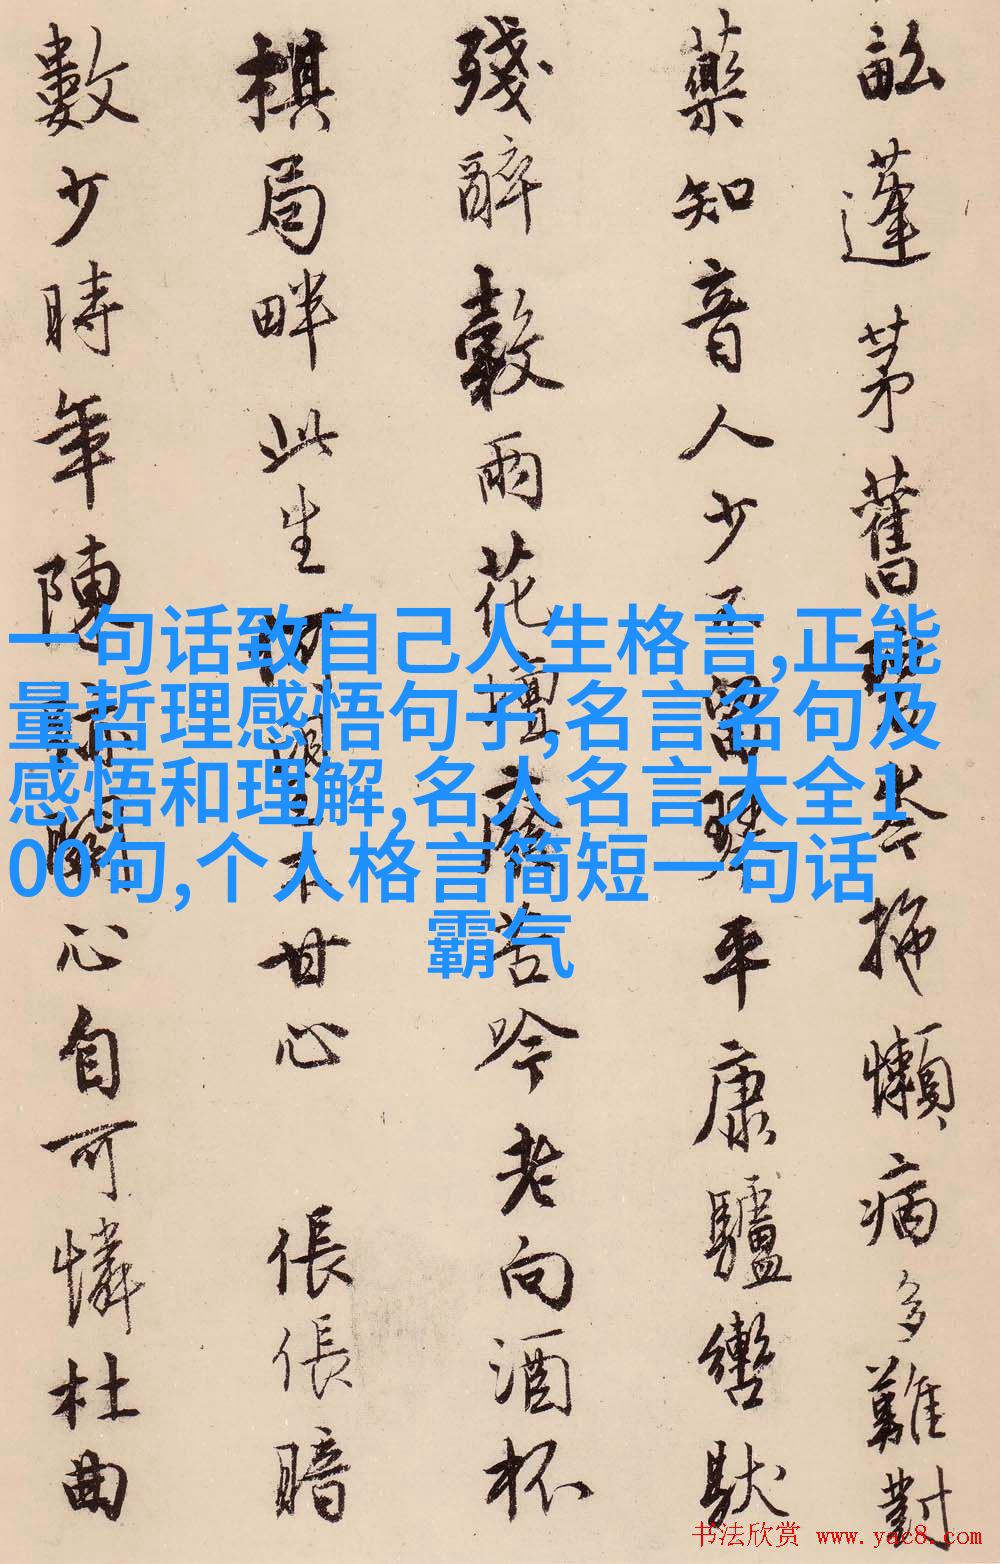 畝蓬茅舊岑拖懶病多難對
藥知音人少不留琴平康驢轡馱
殘醉穀雨花壇苦吟老向酒杯
棋局畔此生不甘心 悵悵暗
數少時年陳跡關心自可憐杜曲
一句话致自己人生格言,正能
量哲理感悟句子,名言名句及
感悟和理解,名人名言大全1
00句,个人格言简短一句话
霸气
书法欣赏 www.yac8.com